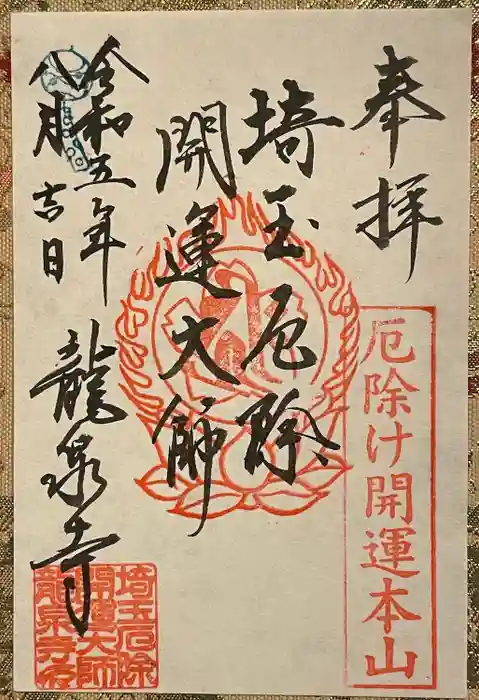 奉拝
厄除け開運本山
埼玉厄除
開運大師
令和五年
八月吉日
龍泉寺
埼玉厄除
開運大師
龍泉寺